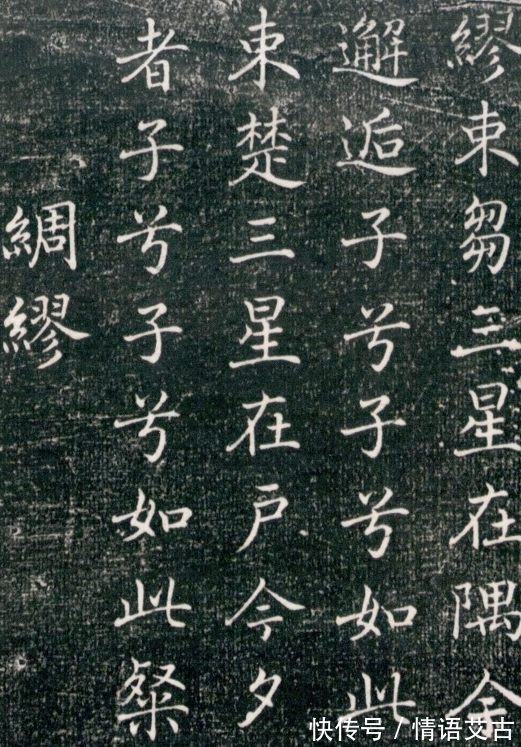 繆束芻三星在隅今
邂逅子兮子兮如此
束楚三星在戶今夕
者子兮子兮如此粲
綢繆
快传号/情语艾古